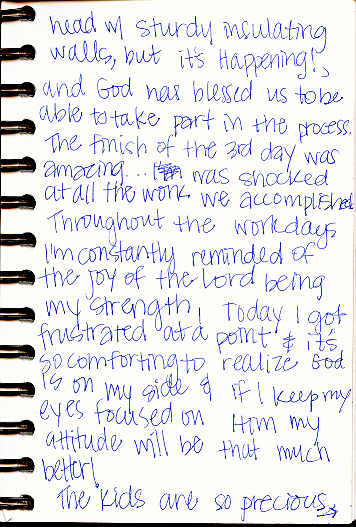 head w/ sturdy insulating
walls, but it's Happening!,
and God has blessed us to be
able to take part in the process.
The finish of the 3rd day was
amazing... was shocked
at all the work we accomplished
Throughout the workdays
I'm constantly reminded of
the joy of the Lord being
my strength! Today I got
frustrated at a point & it's
so comforting to realize God
is on my side & if I keep my
eyes focused on Him my
attitude will be that much
better!
The kids are so precious